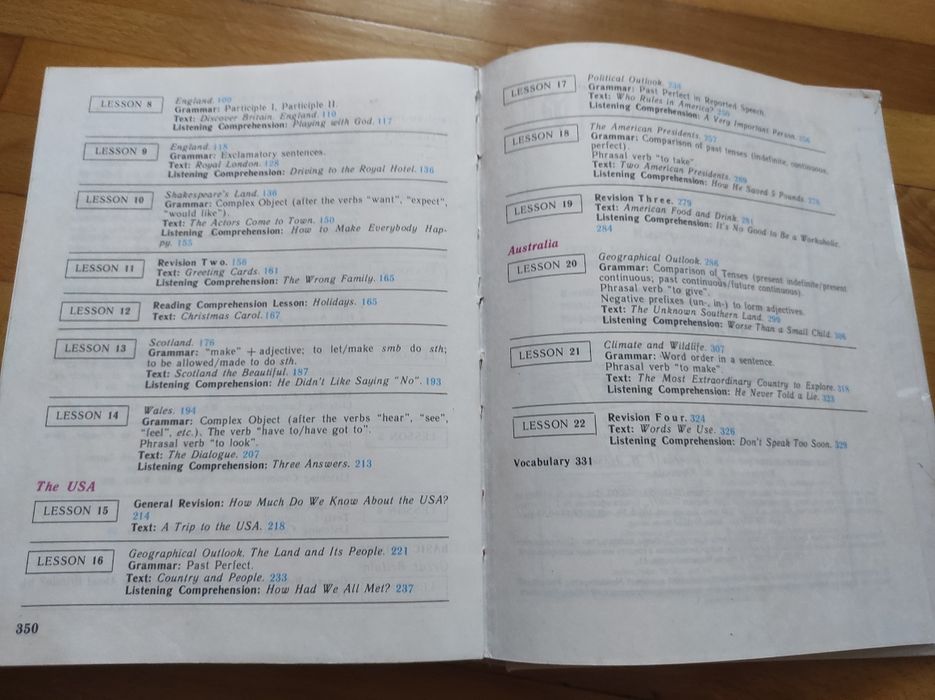 LESSON 8
England. 100
Grammar: Participle I, Participle II.
Text: Discover Britain. England. 110
Listening Comprehension: Playing with God. 117
LESSON 9
England. 118
Grammar: Exclamatory sentences.
Text: Royal London. 128
Listening Comprehension: Driving to the Royal Hotel. 136
LESSON 10
Shakespeare's Land. 136
Grammar: Complex Object (after the verbs "want", "expect",
"would like").
Text: The Actors Come to Town. 150
Listening Comprehension: How to Make Everybody Hap-
py. 155
LESSON 11
Revision Two. 156
Text: Greeting Cards. 161
Listening Comprehension: The Wrong Family. 165
LESSON 12
Reading Comprehension Lesson: Holidays. 165
Text: Christmas Carol. 167
LESSON 13
Scotland. 176
Grammar: "make" + adjective; to let/make smb do sth;
to be allowed/made to do sth.
Text: Scotland the Beautiful. 187
Listening Comprehension: He Didn't Like Saying "No". 193
LESSON 14
Wales. 194
Grammar: Complex Object (after the verbs "hear", "see",
"feel", etc.). The verb "have to/have got to".
Phrasal verb "to look".
Text: The Dialogue. 207
Listening Comprehension: Three Answers. 213
The USA
LESSON 15
General Revision: How Much Do We Know About the USA?
214
Text: A Trip to the USA. 218
LESSON 16
Geographical Outlook. The Land and Its People. 221
Grammar: Past Perfect.
Text: Country and People. 233
Listening Comprehension: How Had We All Met? 237
350
LESSON 17
Political Outlook.
Grammar: Past Perfect in Reported Speech.
Text: Who Rules in America?
Listening Comprehension: A Very Important Person. 256
LESSON 18
The American Presidents. 257
Grammar: Comparison of past tenses (indefinite, continuous,
perfect).
Phrasal verb "to take".
Text: Two American Presidents. 269
Listening Comprehension: How He Saved 5 Pounds. 278
LESSON 19
Revision Three. 279
Text: American Food and Drink. 281
Listening Comprehension: It's No Good to Be a Workaholic.
284
Australia
LESSON 20
Geographical Outlook. 286
Grammar: Comparison of Tenses (present indefinite/present
continuous; past continuous/future continuous).
Phrasal verb "to give".
Negative prefixes (un-, in-) to form adjectives.
Text: The Unknown Southern Land. 299
Listening Comprehension: Worse Than a Small Child. 306
LESSON 21
Climate and Wildlife. 307
Grammar: Word order in a sentence.
Phrasal verb "to make".
Text: The Most Extraordinary Country to Explore. 318
Listening Comprehension: He Never Told a Lie. 323
LESSON 22
Revision Four. 324
Text: Words We Use. 326
Listening Comprehension: Don't Speak Too Soon. 329
Vocabulary 331